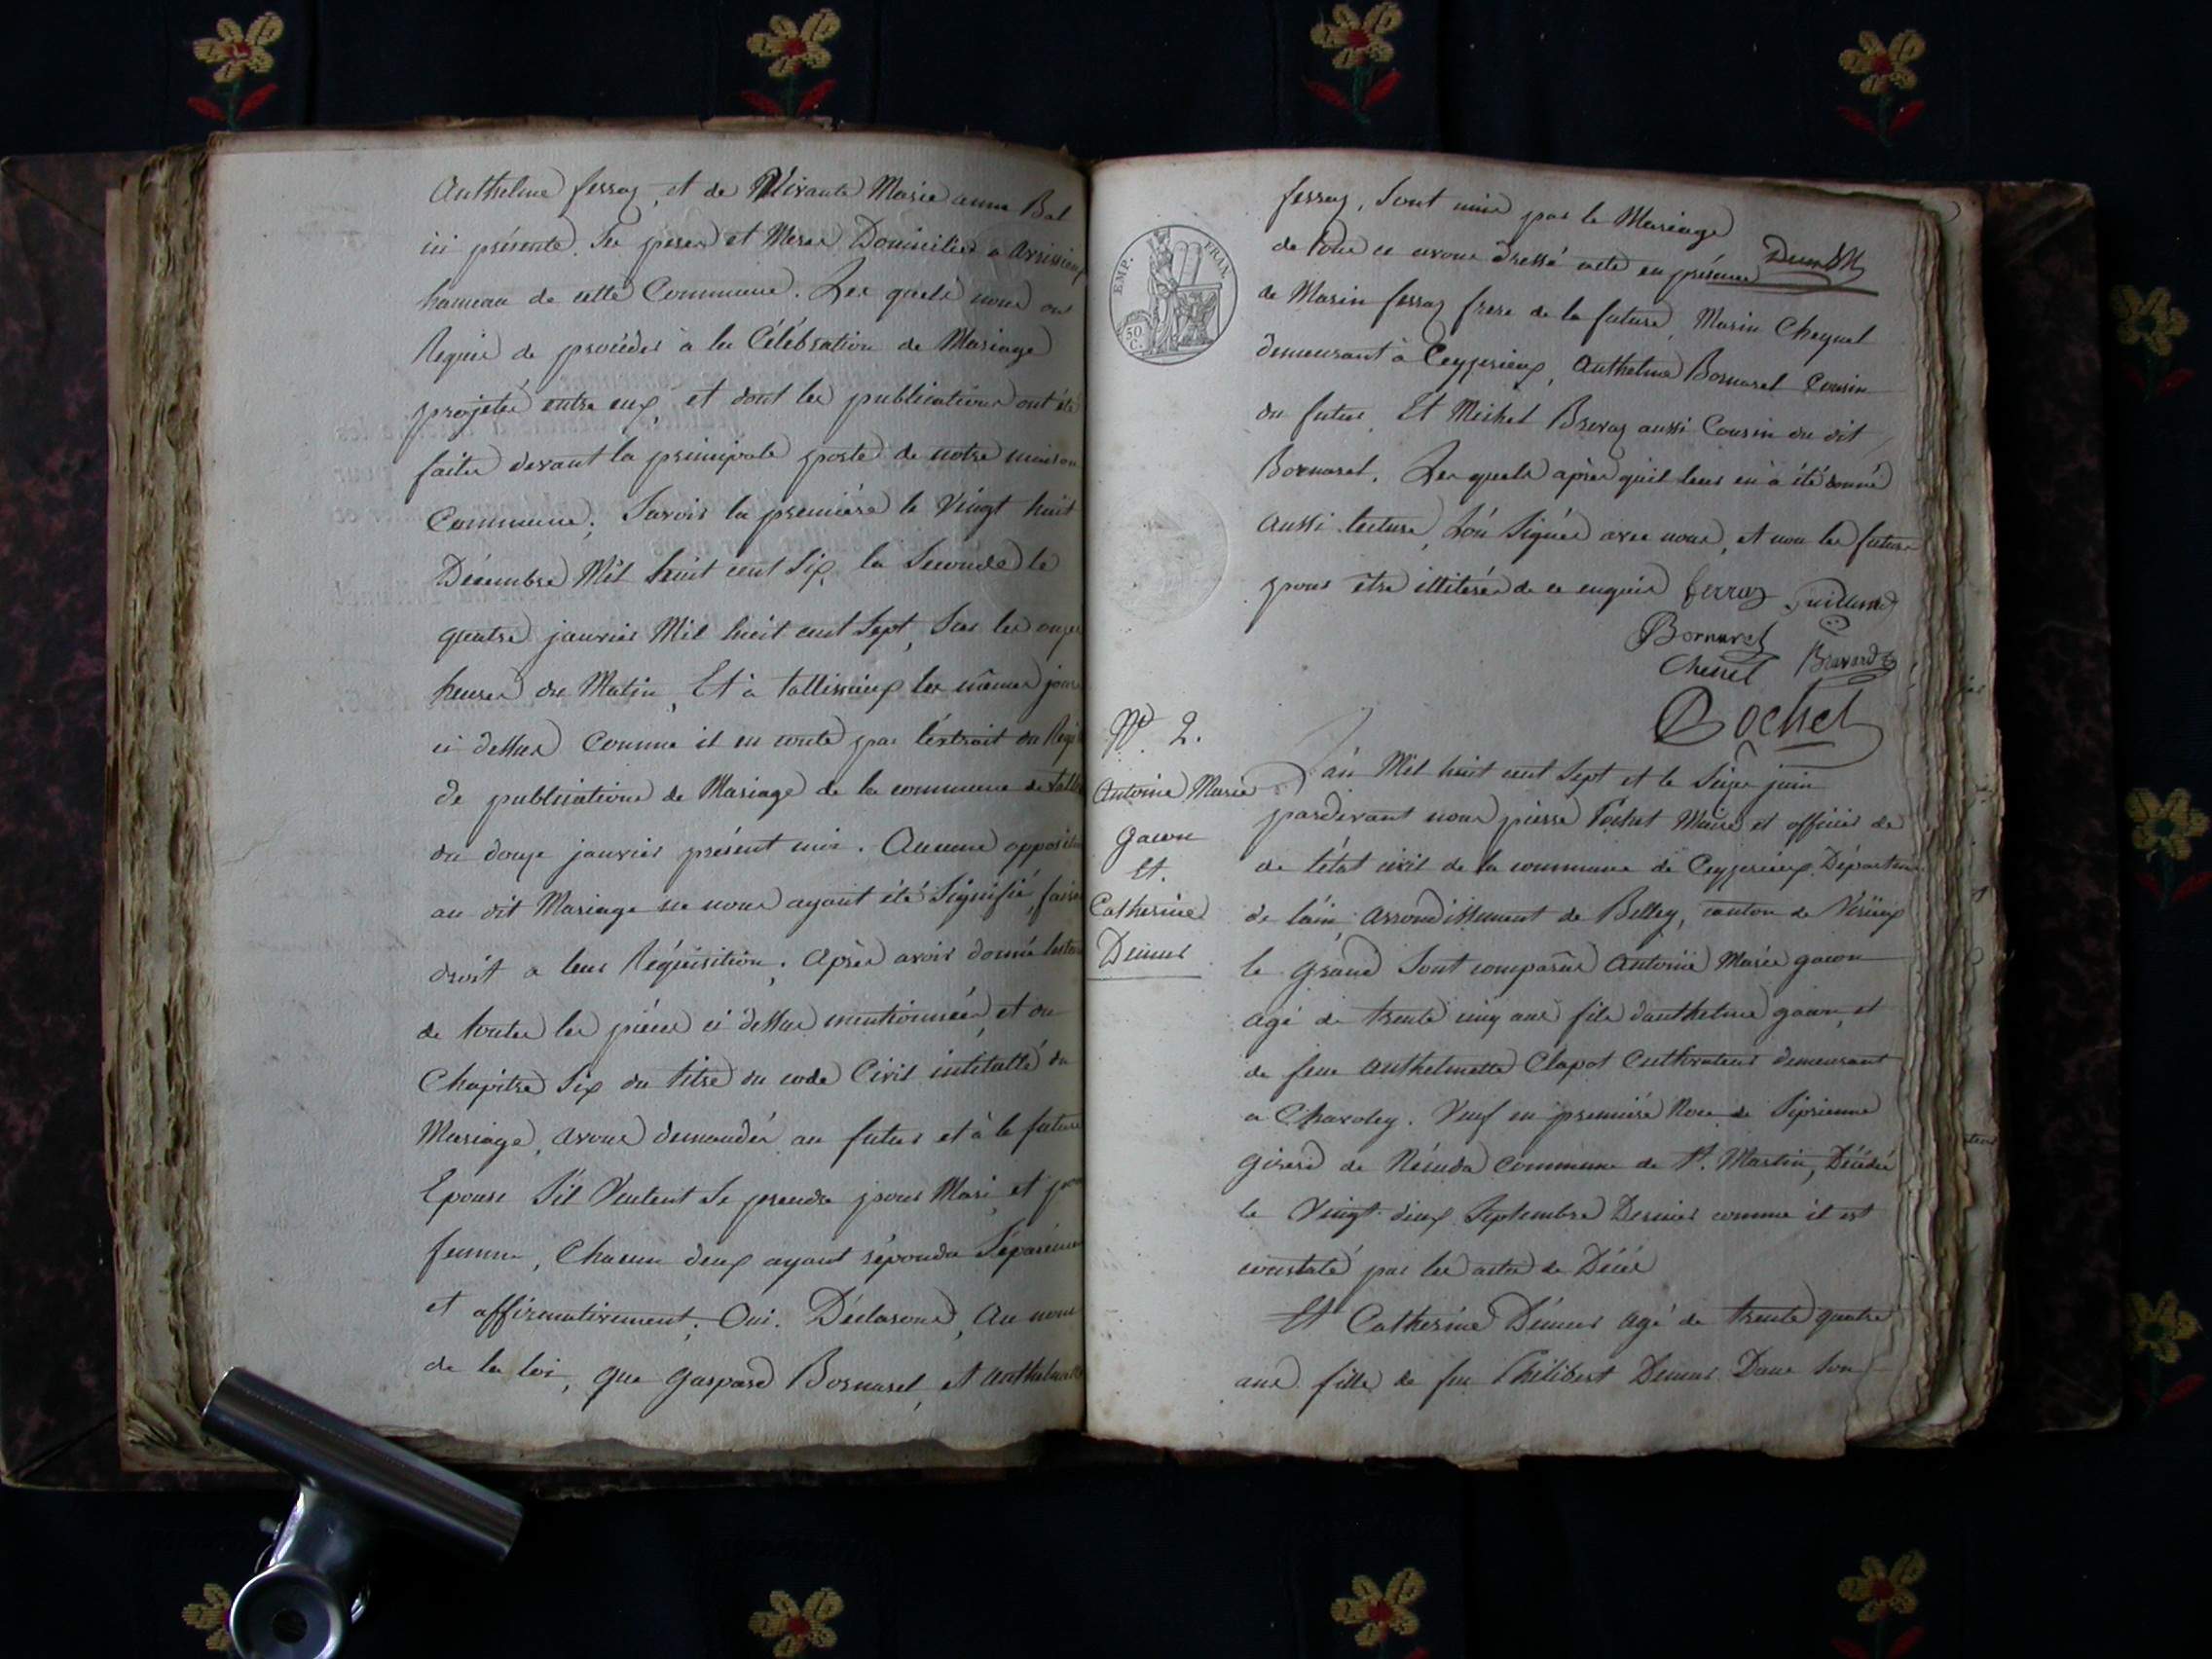 Anthelme ferraz, et de Vivante Marie anne Bal
ici présente. Ses peres et Meres Domiciliés a Arvissieux
hameau de cette Commune. Les quels nous ont
Requis de procéder à la Célébration de Mariage
projetée entre eux, et dont les publications ont été
faites devant la principale porte de notre maison
Commune; Savoir la première le Vingt huit
Décembre Mil huit cent Six, la Seconde le
quatre janvier Mil huit cent Sept, Sur les onze
heures du Matin, Et à tallissieux les mêmes jours
ci dessus Comme il en conte par l'extrait du Regis
de publications de Mariage de la commune de talli
du douze janvier présent moi. Aucune opposition
au dit Mariage ne nous ayant été Signifié, faisan
droit a leur Réquisition; Après avoir donné lecture
de toutes les pièces ci dessus mentionnées, et du
Chapitre Six du titre du code Civil intitullé du
Mariage, avons demandés au futur et à la future
Epouse S'il Veulent Se prendre pour Mari et pour
femme, Chacun deux ayant répondu Séparément
et affirmativement; Oui. Déclarons, Au nom
de la loi, que Gaspard Bornarel, et Anthelmette
EMP. FRAN.
50 C.
ferraz, Sont unis par le Mariage
de tous ce avons dressé acte en présence
de Marin ferraz frere de la future, Marin Cheynel
demeurant à Ceyzerieux, Anthelme Bornarel Cousin
du futur, Et Michel Bravaz aussi Cousin du dit
Bornarel. Les quels après quil leur en à été donné
aussi lecture, Son Signés avec nous, et non les futurs
pour être illiterés de ce enquis ferraz Guilland
Bornarel
Chenel Bravard
Pochet
Nº 2.
Antoine Marie
gacon
Et.
Catherine
Demur
L'án Mil huit cent Sept et le Seize juin
pardevant nous pierre Pochet Maire et officier de
de l'état civil de la commune de Ceyzerieux, Département
de láin, Arrondissement de Belley, canton de Virieux
le grand Sont comparûs Antoine Marie gacon
agé de trente cinq ans fils d'anthelme gacon, et
de feue Anthelmette Clapot Cultivateur demeurant
a Chavoley. Veuf en première Noce de Siprienne
Girerd de Récuda Commune de St. Martin, Décédée
le Vingt-deux Septembre Dernier comme il est
constaté par les actes de Décès
Et Catherine Démur agé de trente quatre
ans fille de feu Philibert Demur Dans Son